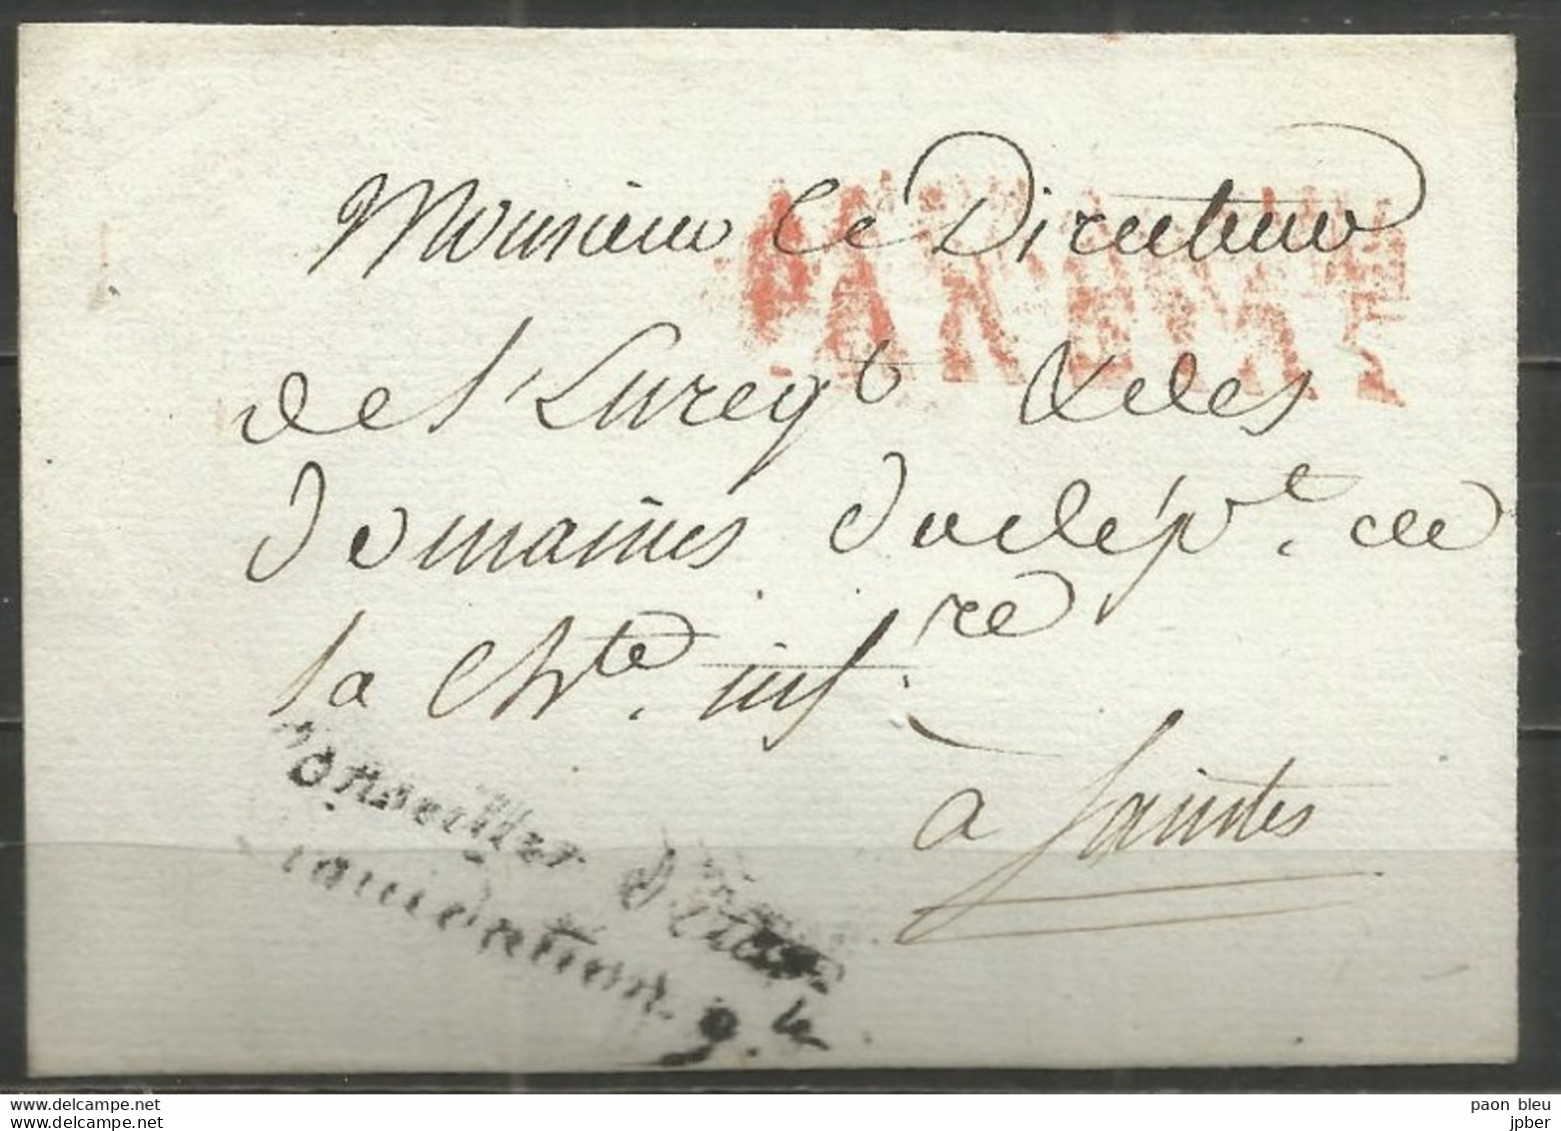 Monsieur le Directeur
de l'Enreg.t & des
Domaines du dép.t de
la Ch.te inf.re
à Saintes
Conseiller d'état
Liquidation. g.le
www.delcampe.net
www.delcampe.net
paon bleu
jpber